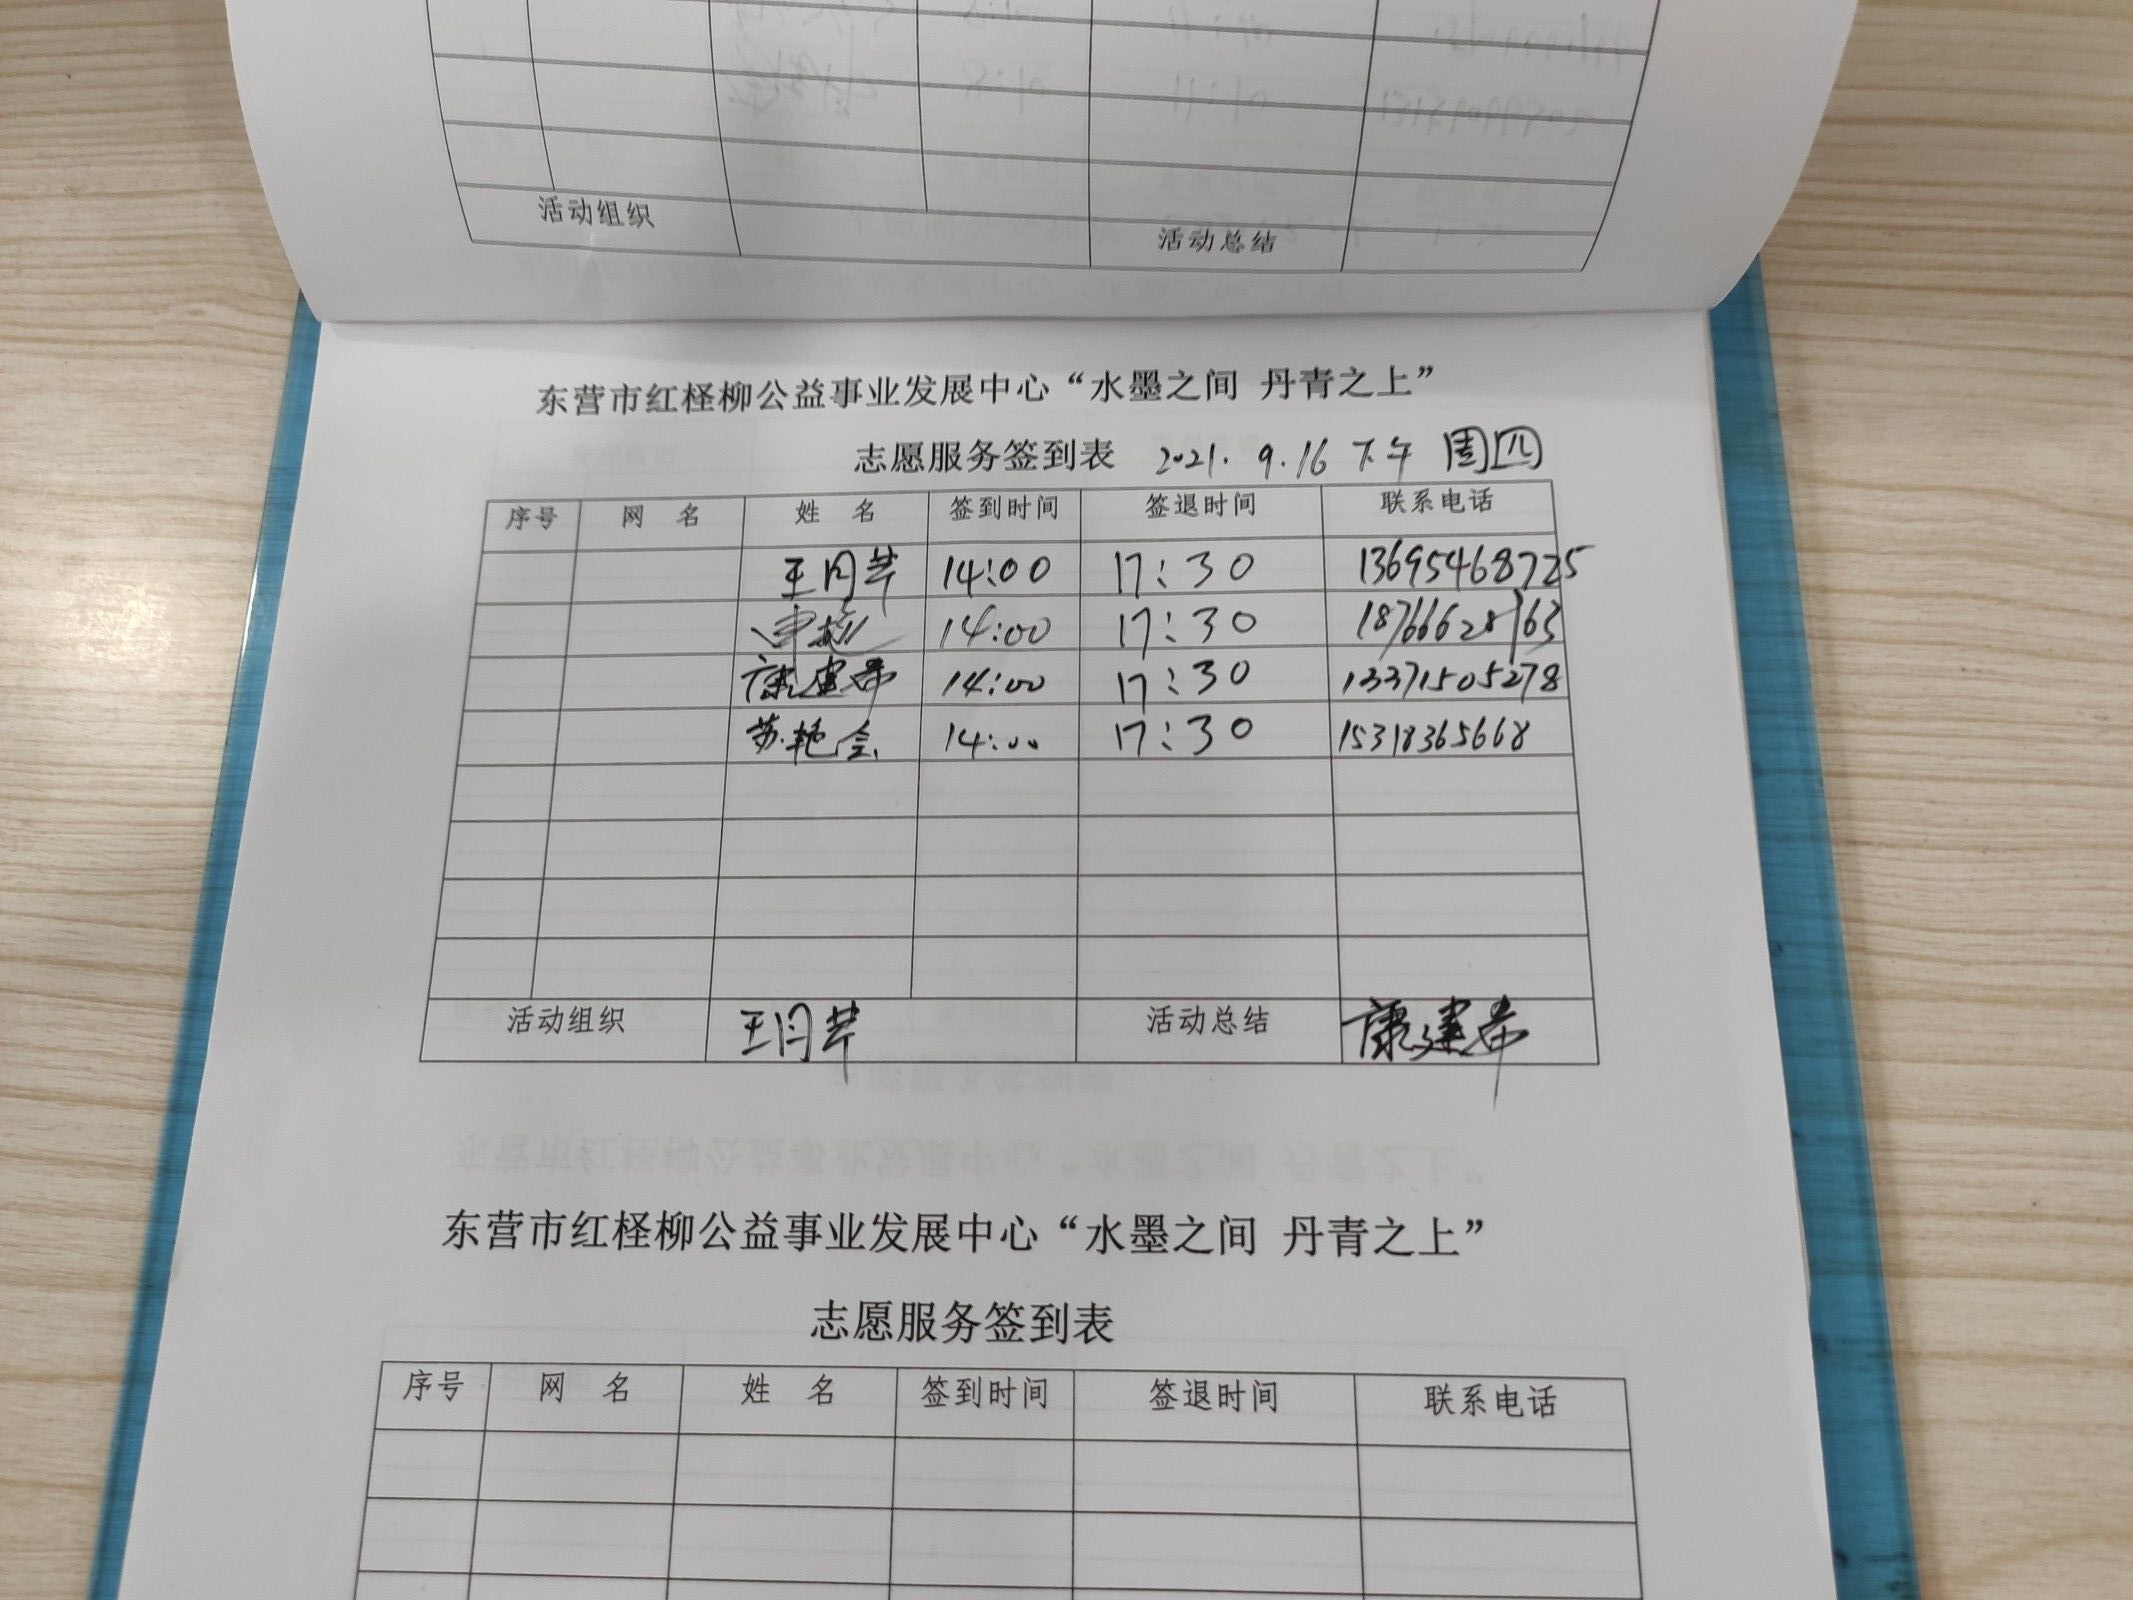 活动组织 活动总结
东营市红柽柳公益事业发展中心“水墨之间 丹青之上”
志愿服务签到表 2021.9.16 下午 周四
序号 网 名 姓 名 签到时间 签退时间 联系电话
王同芹 14:00 17:30 13695468725
14:00 17:30 18766628763
康建帮 14:00 17:30 13371505278
苏艳会 14:00 17:30 15318365668
活动组织 王同芹 活动总结 康建帮
东营市红柽柳公益事业发展中心“水墨之间 丹青之上”
志愿服务签到表
序号 网 名 姓 名 签到时间 签退时间 联系电话